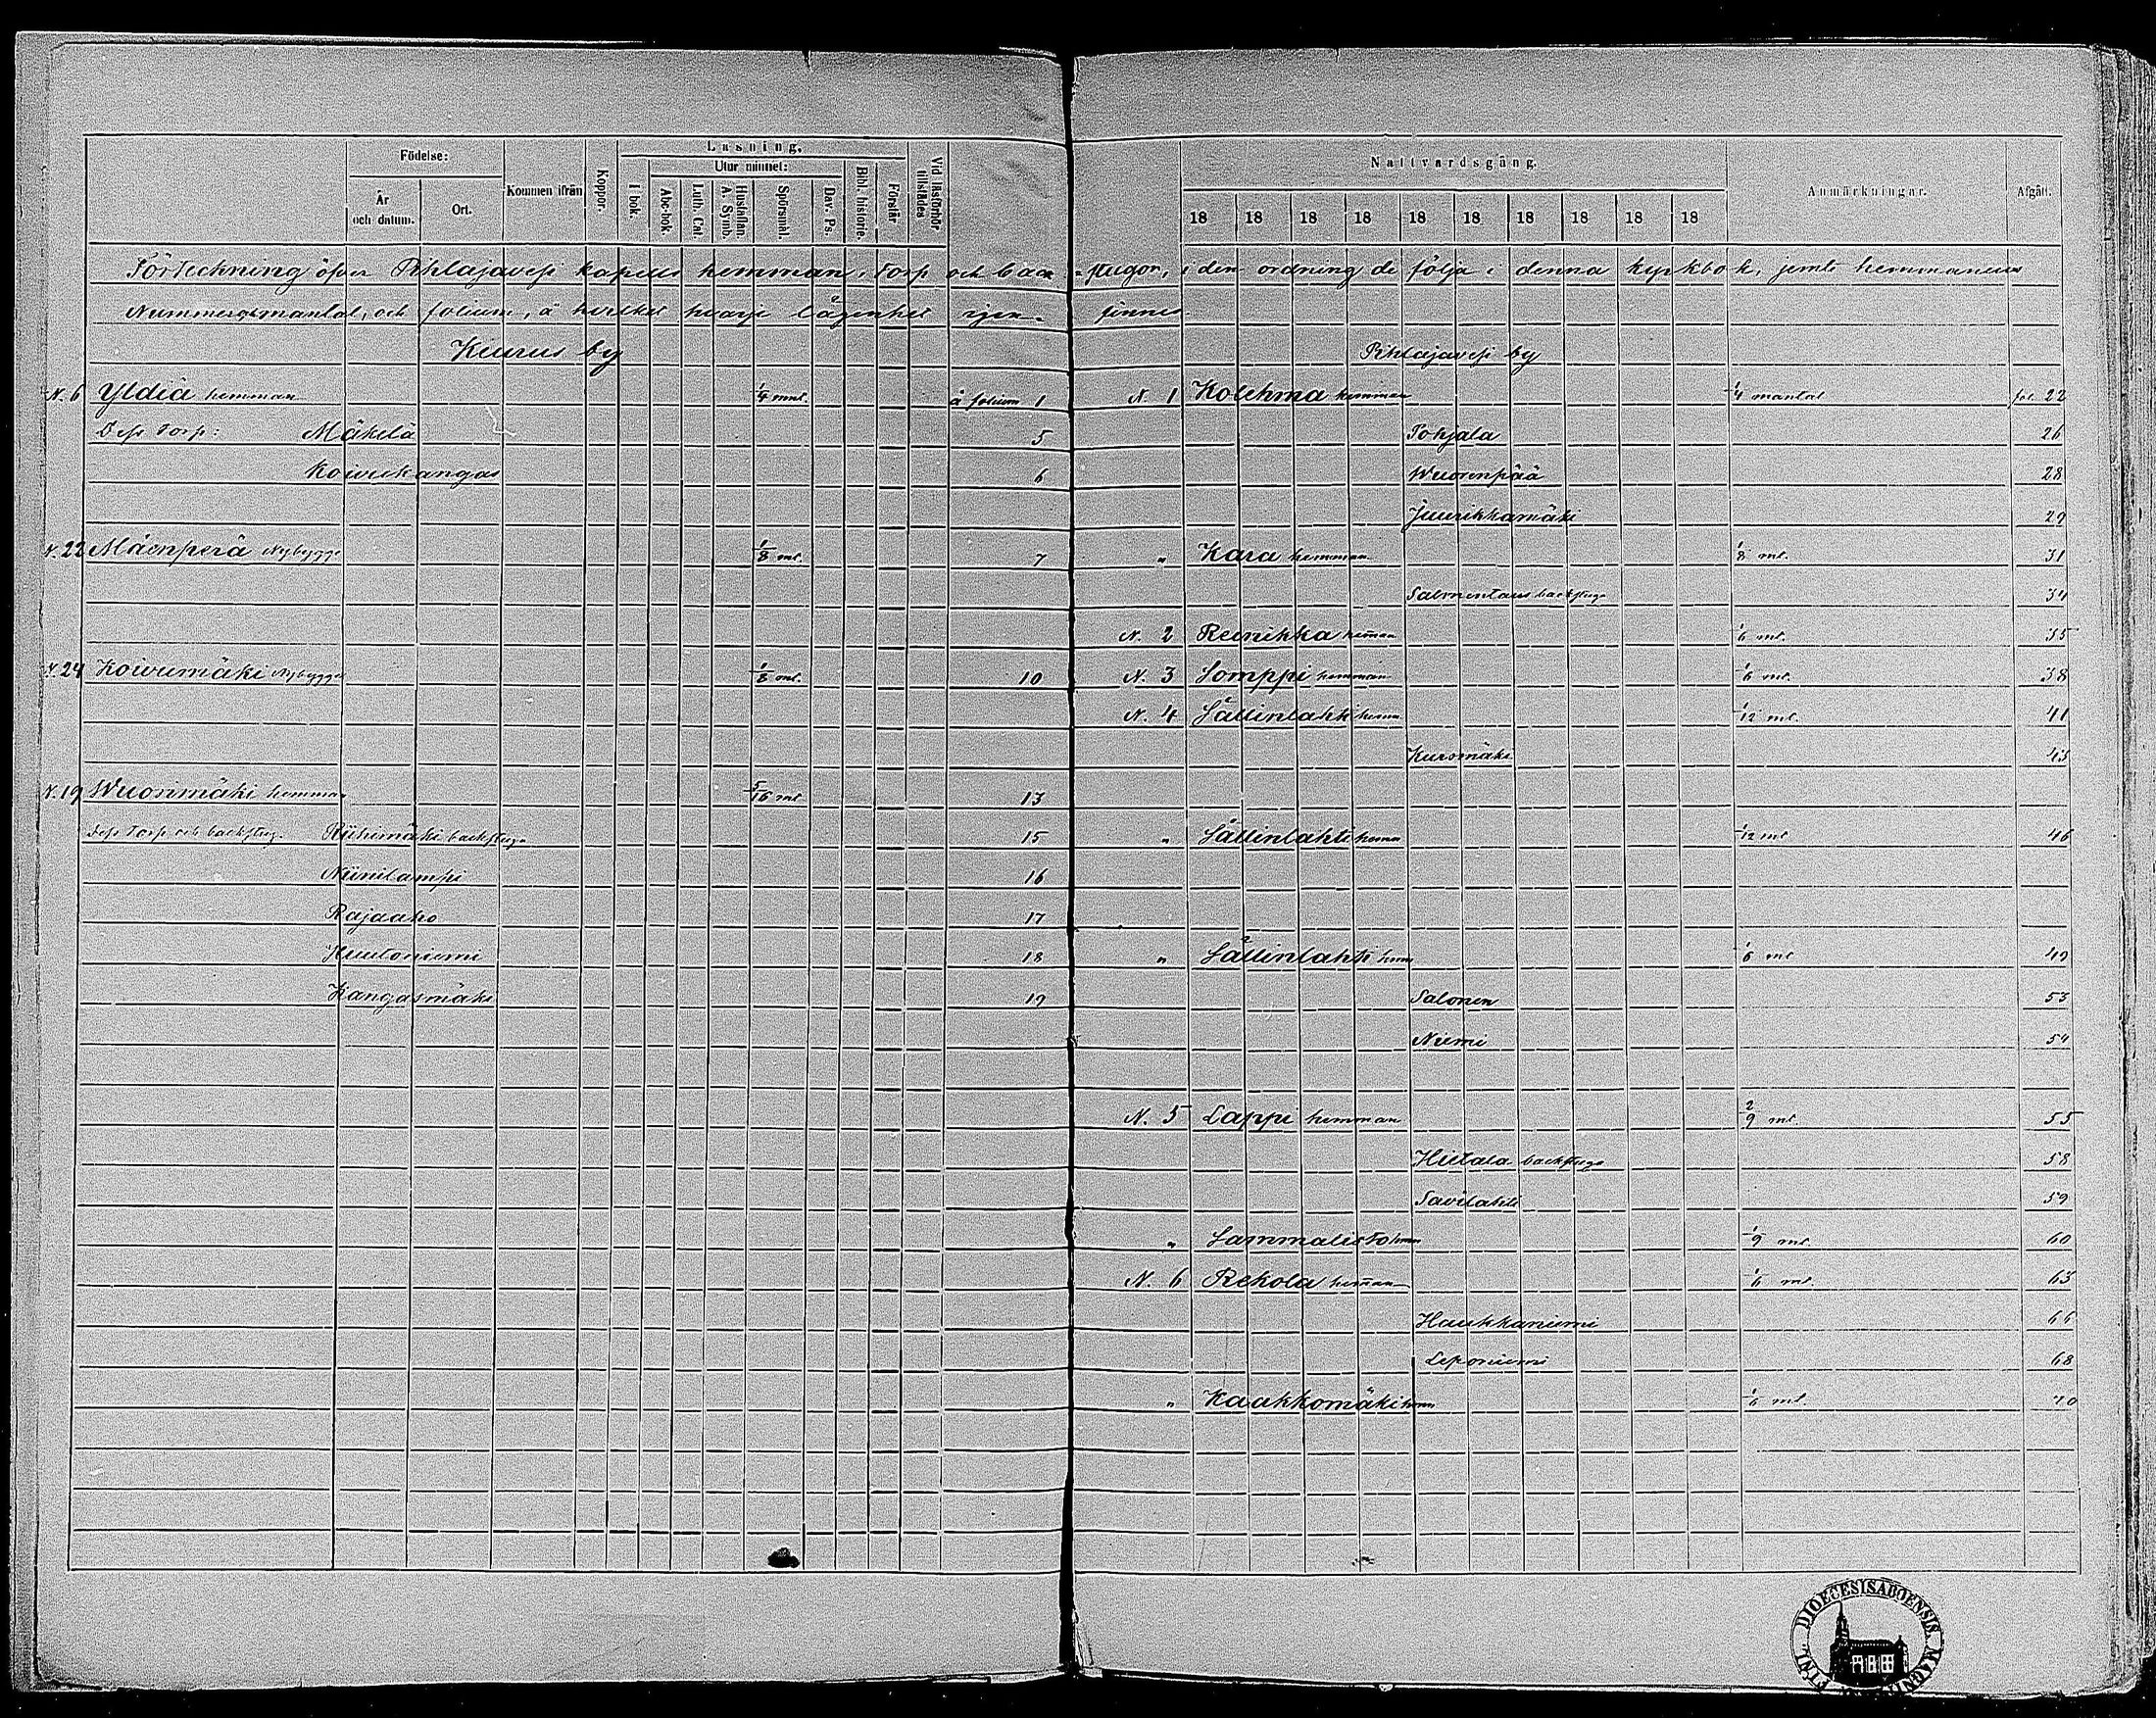 Födelse:
Läsning.
Utur minnet:
År och datum.
Ort.
Kommen ifrån
Koppor.
I bok.
Abc-bok.
Luth. Cat.
Hustaflan. A. Symb.
Spörsmål.
Dav. Ps.
Bibl. historie.
Förstår
Vid läsförhör tillstädes
Förteckning öfver Pihlajavesi kapells hemman, torp och back-
Nummer, mantal, och folium, å hvilket hvarje lägenhet igen-
Keurus by
N. 6 Yldiä hemman 1/4 mnt. å folium 1
Dess torp: Mäkelä 5
Koivukangas 6
N. 22 Mäenperä Nybygge 1/8 mt. 7
N. 24 Koivumäki Nybygge 1/8 mt. 10
N. 19 Wuorimäki hemman 5/16 mt. 13
Dess torp och backstug. Riihimäki backstuga 15
Niinilampi 16
Rajaaho 17
Huutoniemi 18
Kangasmäki 19
Nattvardsgång.
Anmärkningar.
Afgått.
18 18 18 18 18 18 18 18 18 18
stugor, i den ordning de följa i denna kyrkbok, jemte hemmanens
finnes
Pihlajavesi by
N. 1 Kolehma hemman 1/4 mantal fol. 22
Pohjala 26
Wuorenpää 28
Juurikkamäki 29
" Kara hemman 1/8 mt. 31
Salmentaus backstuga 34
N. 2 Reinikka heman 1/6 mt. 35
N. 3 Somppi hemman 1/6 mt. 38
N. 4 Sällinlahti hemn 1/12 mt. 41
Kuromäki 45
" Sällinlahti hemn 1/12 mt 46
" Sällinlahti hemn 1/6 mt 49
Salonen 53
Niemi 54
N. 5 Lappi hemman 2/9 mt. 55
Hietala backstuga 58
Savilahti 59
" Sammalisto hmn 1/9 mt. 60
N. 6 Rekola heman 1/6 mt. 63
Haukkaniemi 66
Leponiemi 68
" Kaakkomäki hmn 1/6 mt. 70
DIOECESIS ABOENSIS. MAGNI